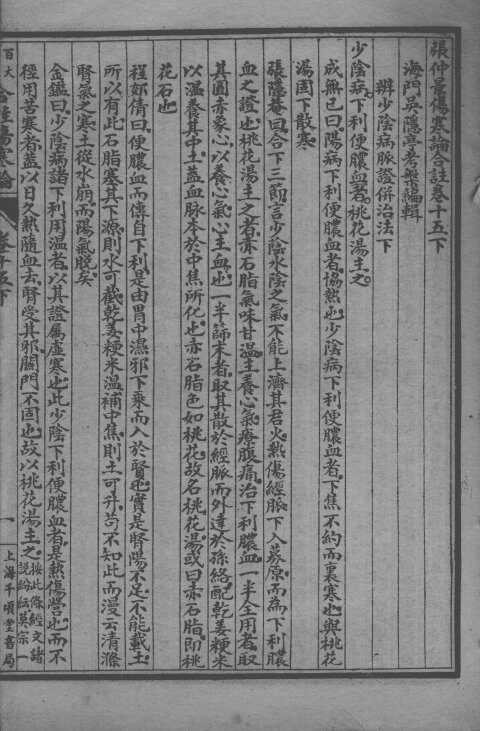 張仲景傷寒論合註卷十五下
海門吳隱亭考槃編輯
辨少陰病脈證併治法下
少陰病。下利便膿血者。桃花湯主之。
成無已曰。陽病下利便膿血者。協熱也。少陰病下利便膿血者。下焦不約而裏寒也。與桃花
湯固下散寒。
張隱菴曰。合下三節。言少陰水陰之氣。不能上濟其君火。熱傷經脈。下入募原。而為下利膿
血之證也。桃花湯主之者。赤石脂氣味甘溫。主養心氣。療腹痛。治下利膿血。一半全用者。取
其圓赤象心。以養心氣。心主血也。一半篩末者。取其散於經脈。而外達於孫絡。配乾姜粳米
以溫養其中土。蓋血脉本於中焦所化也。赤石脂色如桃花。故名桃花湯。或曰赤石脂。即桃
花石也。
程郊倩曰。便膿血而傳自下利。是由胃中濕邪下乘而入於腎也。實是腎陽不足。不能載土
所以有此。石脂塞其下源。則水可截。乾姜粳米溫補中焦。則土可升。苟不知此。而漫云清滌
腎氣之寒。土從水崩。而陽氣脫矣。
金鑑曰。少陰病諸下利用溫者。以其證屬虛寒也。此少陰下利便膿血者。是熱傷營也。而不
徑用苦寒者。蓋以日久熱隨血去。腎受其邪。關門不固也。故以桃花湯主之。按此條經文諸
說紛紜莫宗一
百大
合註傷寒論
卷十五下
一
上海千頃堂書局